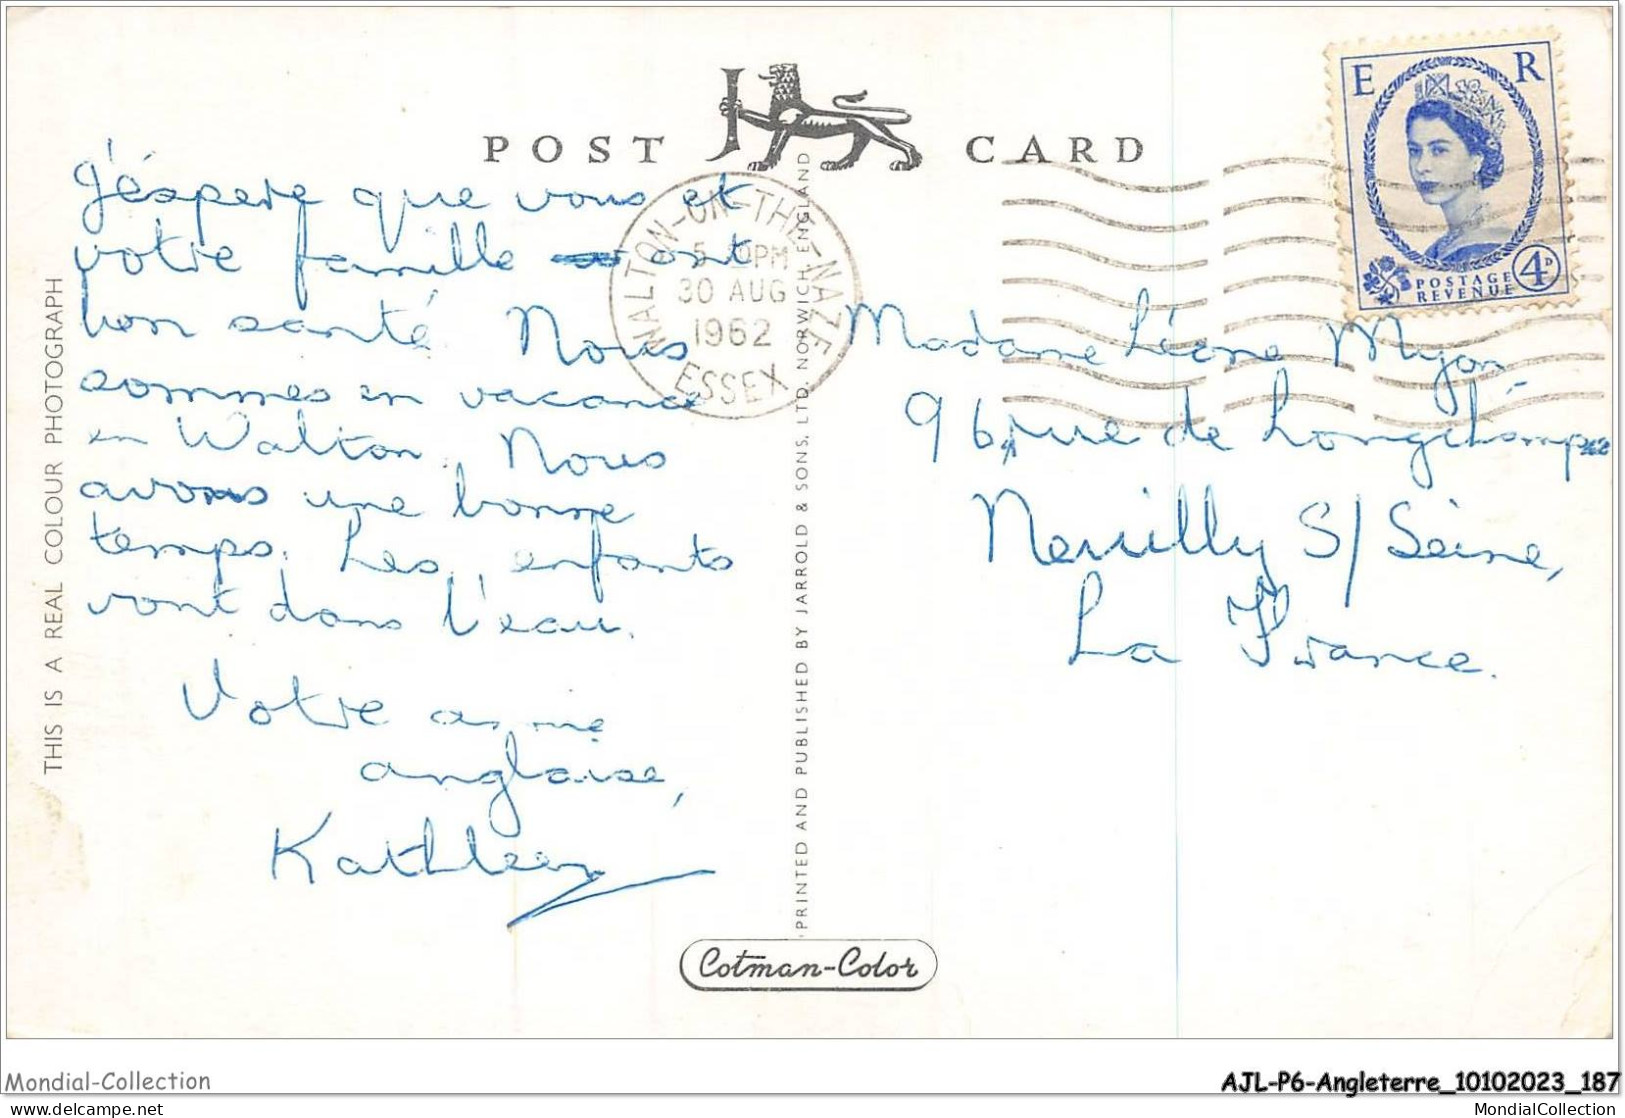 POST CARD
E R
POSTAGE
REVENUE
4D
WALTON-ON-THE-NAZE
PM
30 AUG
1962
ESSEX
J'éspere que vous et
votre famille ont
bon santé. Nous
sommes en vacance
en Walton. Nous
avons une bonne
temps. Les enfants
vont dans l'eau.
Votre amie
anglaise,
Kathleen
Madame Léone Myon
96 rue de Longchamp
Neuilly S/Seine,
La France.
THIS IS A REAL COLOUR PHOTOGRAPH
PRINTED AND PUBLISHED BY JARROLD & SONS, LTD, NORWICH, ENGLAND
Cotman-Color
Mondial-Collection
AJL-P6-Angleterre_10102023_187
delcampe.net
MondialCollection